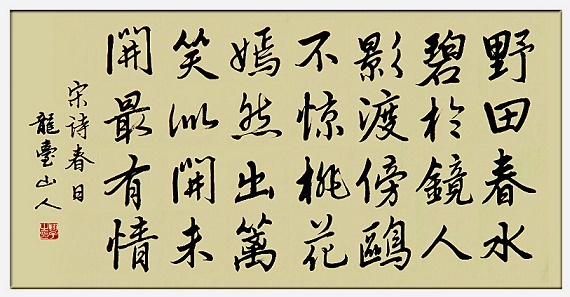 野田春水
碧於鏡人
影渡傍鷗
不惊桃花
嫣然出篱
笑似開未
開最有情
宋诗春日
龍臺山人